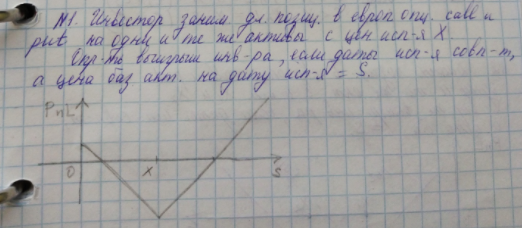 N1. Инвестор заним. дл. позиц. в европ опц. call и
put на одни и те же активы с цен исп-я X
Опр-ть выигрыш инв-ра, если даты исп-я совп-т,
а цена баз акт. на дату исп-я = S.
PnL
0 X S